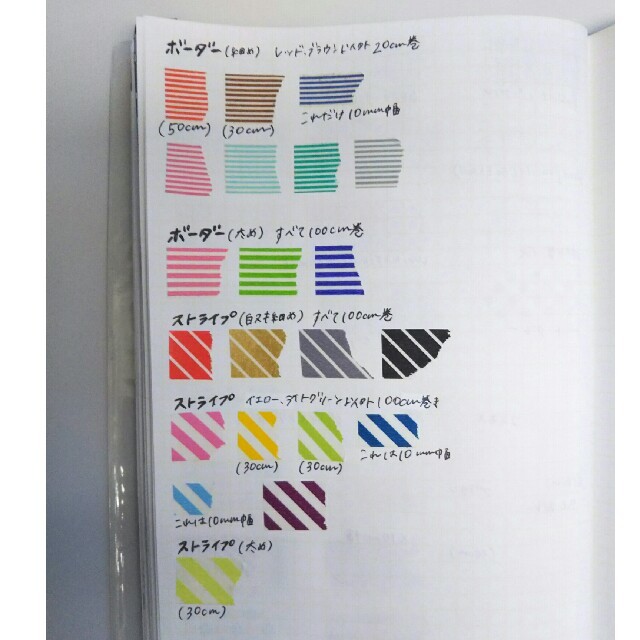 ボーダー(細め) レッド、ブラウン以外 20cm巻
(50cm) (30cm) これだけ10mm幅
ボーダー(太め) すべて100cm巻
ストライプ(白ヌキ細め) すべて100cm巻
ストライプ イエロー、ライトグリーン以外100cm巻き
(30cm) (30cm) これは10mm幅
これは10mm幅
ストライプ(太め)
(30cm)